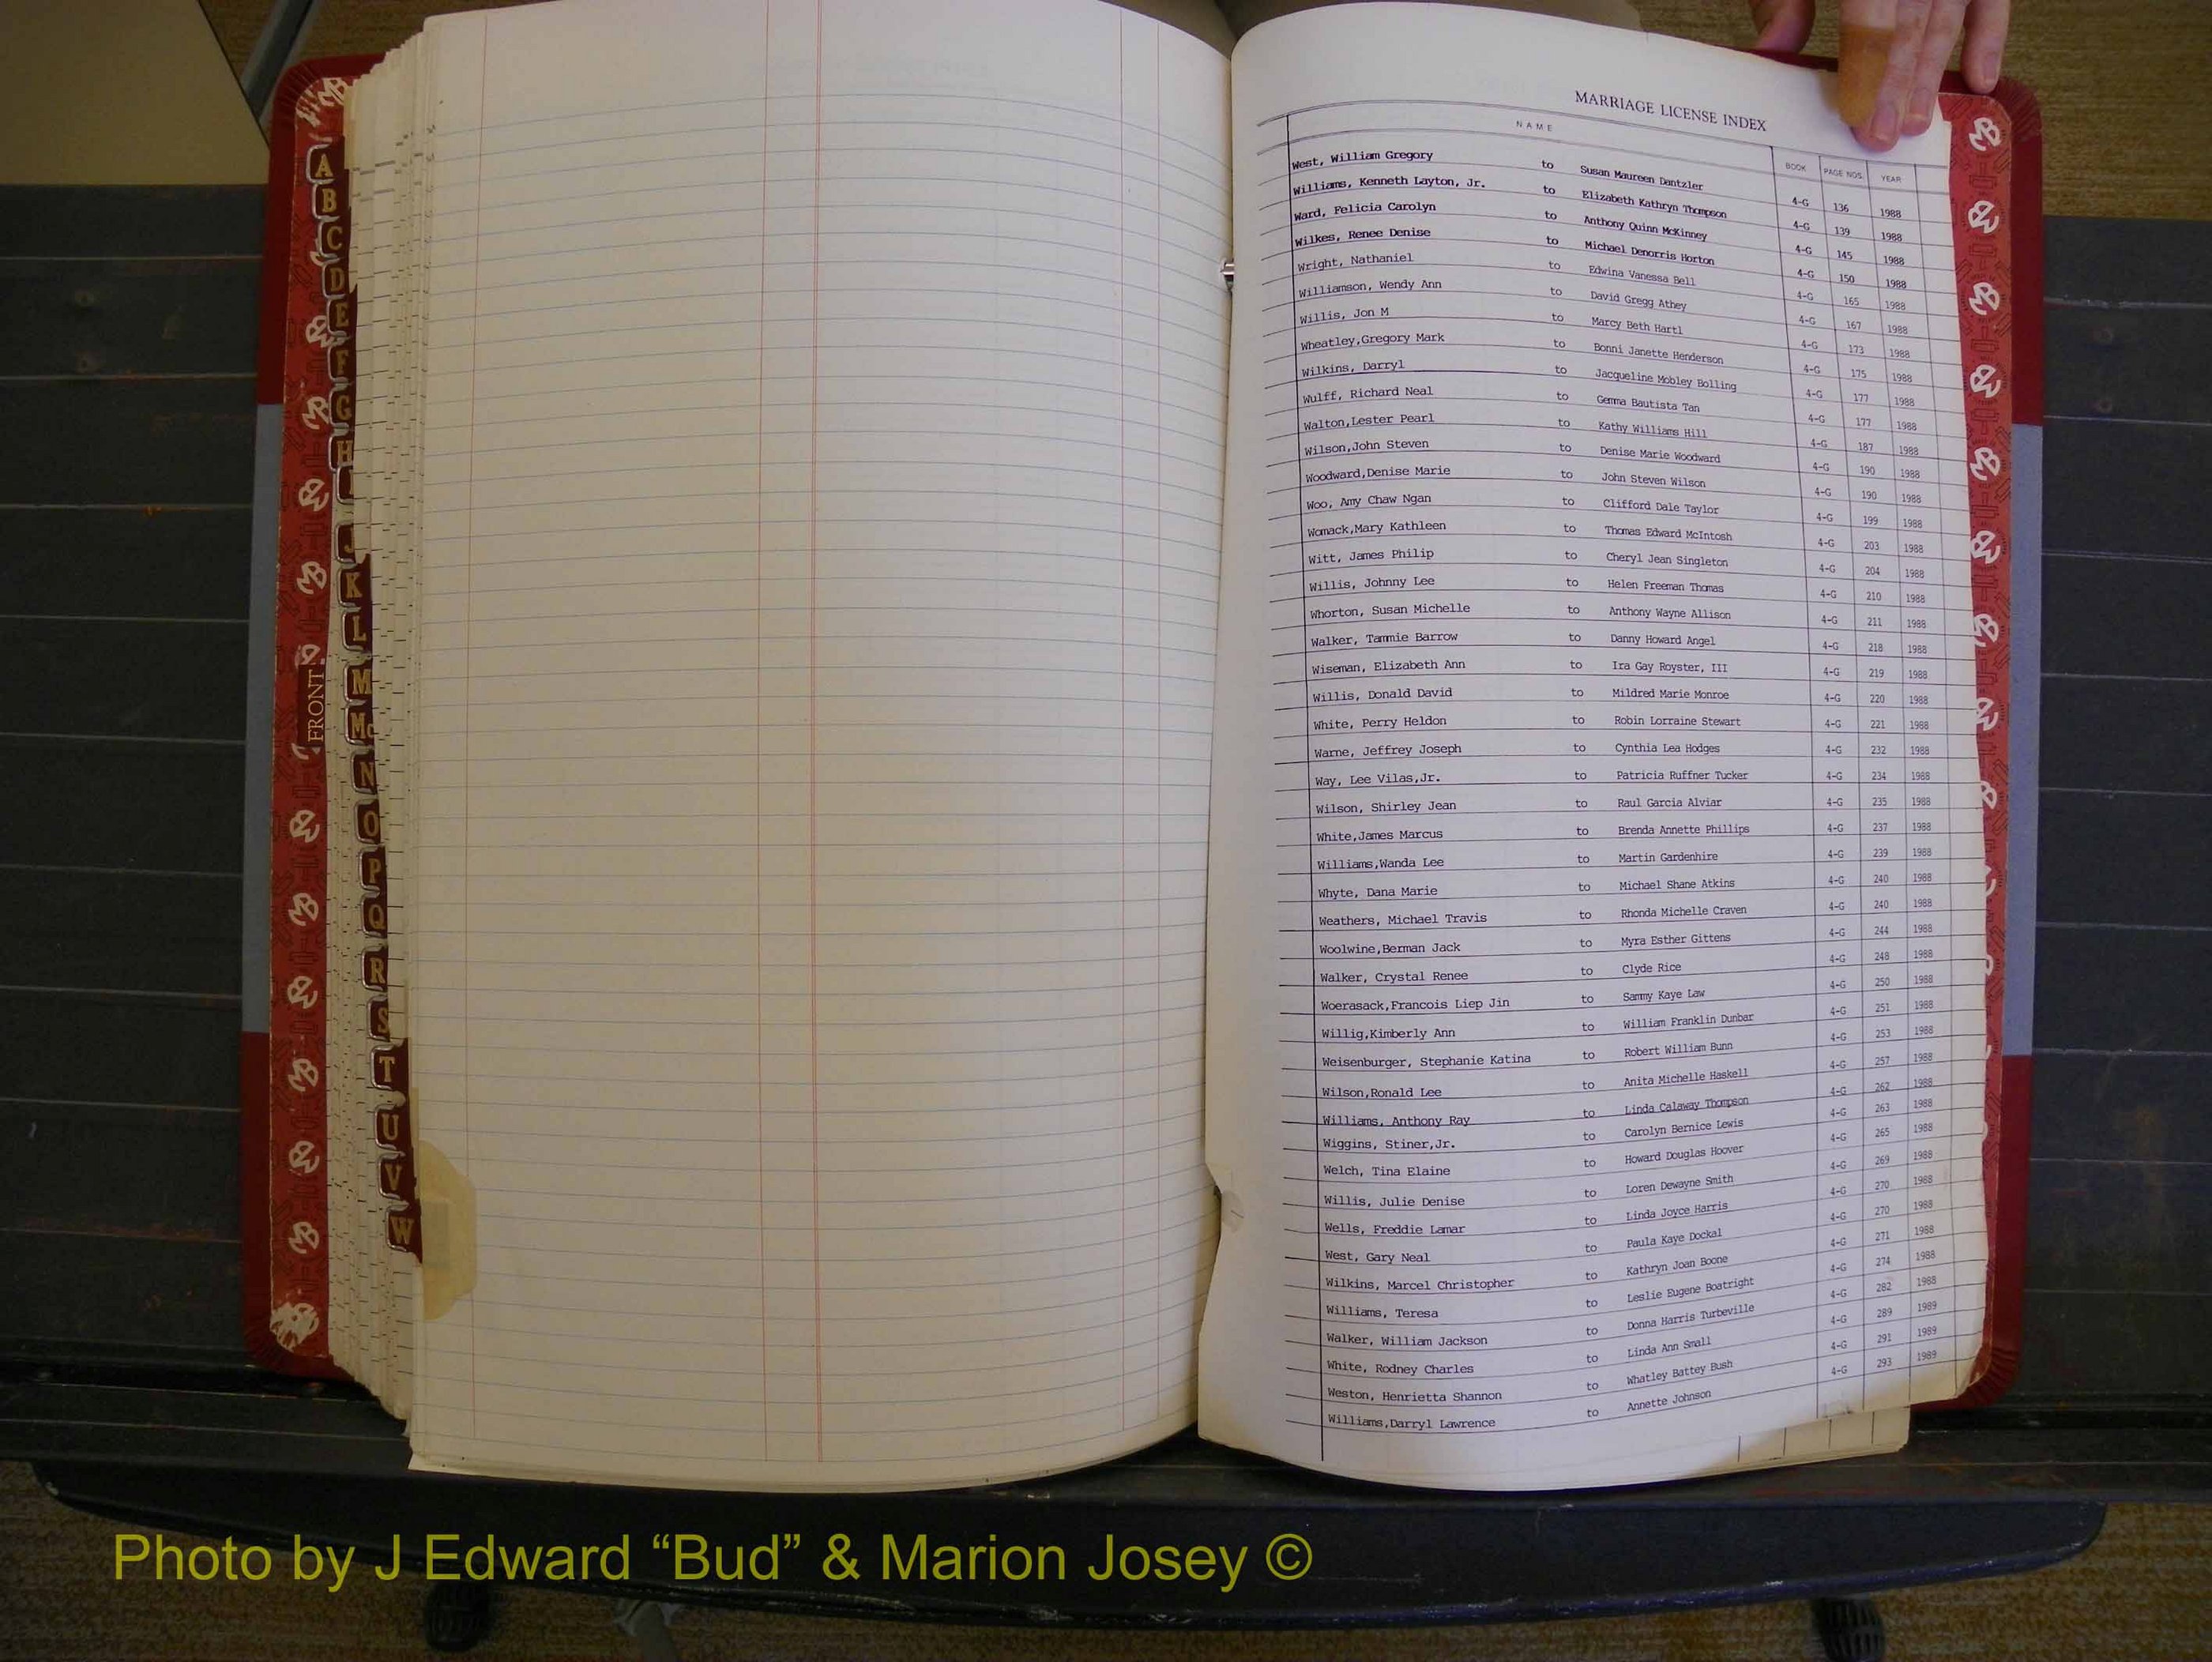 MARRIAGE LICENSE INDEX
NAME BOOK PAGE NOS. YEAR
West, William Gregory to Susan Maureen Dantzler 4-G 136 1988
Williams, Kenneth Layton, Jr. to Elizabeth Kathryn Thompson 4-G 139 1988
Ward, Felicia Carolyn to Anthony Quinn McKinney 4-G 145 1988
Wilkes, Renee Denise to Michael Denorris Horton 4-G 150 1988
Wright, Nathaniel to Edwina Vanessa Bell 4-G 165 1988
Williamson, Wendy Ann to David Gregg Athey 4-G 167 1988
Willis, Jon M to Marcy Beth Hartl 4-G 173 1988
Wheatley,Gregory Mark to Bonni Janette Henderson 4-G 175 1988
Wilkins, Darryl to Jacqueline Mobley Bolling 4-G 177 1988
Wulff, Richard Neal to Gemma Bautista Tan 4-G 177 1988
Walton,Lester Pearl to Kathy Williams Hill 4-G 187 1988
Wilson,John Steven to Denise Marie Woodward 4-G 190 1988
Woodward,Denise Marie to John Steven Wilson 4-G 190 1988
Woo, Amy Chaw Ngan to Clifford Dale Taylor 4-G 199 1988
Womack,Mary Kathleen to Thomas Edward McIntosh 4-G 203 1988
Witt, James Philip to Cheryl Jean Singleton 4-G 204 1988
Willis, Johnny Lee to Helen Freeman Thomas 4-G 210 1988
Whorton, Susan Michelle to Anthony Wayne Allison 4-G 211 1988
Walker, Tammie Barrow to Danny Howard Angel 4-G 218 1988
Wiseman, Elizabeth Ann to Ira Gay Royster, III 4-G 219 1988
Willis, Donald David to Mildred Marie Monroe 4-G 220 1988
White, Perry Heldon to Robin Lorraine Stewart 4-G 221 1988
Warne, Jeffrey Joseph to Cynthia Lea Hodges 4-G 232 1988
Way, Lee Vilas,Jr. to Patricia Ruffner Tucker 4-G 234 1988
Wilson, Shirley Jean to Raul Garcia Alviar 4-G 235 1988
White,James Marcus to Brenda Annette Phillips 4-G 237 1988
Williams,Wanda Lee to Martin Gardenhire 4-G 239 1988
Whyte, Dana Marie to Michael Shane Atkins 4-G 240 1988
Weathers, Michael Travis to Rhonda Michelle Craven 4-G 240 1988
Woolwine,Berman Jack to Myra Esther Gittens 4-G 244 1988
Walker, Crystal Renee to Clyde Rice 4-G 248 1988
Woerasack,Francois Liep Jin to Sammy Kaye Law 4-G 250 1988
Willig,Kimberly Ann to William Franklin Dunbar 4-G 251 1988
Weisenburger, Stephanie Katina to Robert William Bunn 4-G 253 1988
Wilson,Ronald Lee to Anita Michelle Haskell 4-G 257 1988
Williams, Anthony Ray to Linda Calaway Thompson 4-G 262 1988
Wiggins, Stiner,Jr. to Carolyn Bernice Lewis 4-G 263 1988
Welch, Tina Elaine to Howard Douglas Hoover 4-G 265 1988
Willis, Julie Denise to Loren Dewayne Smith 4-G 269 1988
Wells, Freddie Lamar to Linda Joyce Harris 4-G 270 1988
West, Gary Neal to Paula Kaye Dockal 4-G 270 1988
Wilkins, Marcel Christopher to Kathryn Joan Boone 4-G 271 1988
Williams, Teresa to Leslie Eugene Boatright 4-G 274 1988
Walker, William Jackson to Donna Harris Turbeville 4-G 282 1988
White, Rodney Charles to Linda Ann Small 4-G 289 1989
Weston, Henrietta Shannon to Whatley Battey Bush 4-G 291 1989
Williams,Darryl Lawrence to Annette Johnson 4-G 293 1989
A
B
C
D
E
F
G
H
J
K
L
M
Mc
N
O
P
Q
R
S
T
U
V
W
FRONT
Photo by J Edward “Bud” & Marion Josey ©